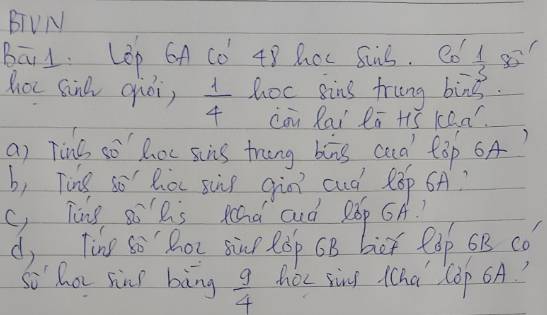 BTVN
Bài 1: Lớp 6A có 48 học sinh. Có 1/3 số
học sinh giỏi, 1/4 học sinh trung bình.
còn lại là HS khá.
a) Tính số học sinh trung bình của lớp 6A?
b, Tính số học sinh giỏi của lớp 6A?
c, Tính số hs khá của lớp 6A?
d, Tính số học sinh lớp 6B biết lớp 6B có
số học sinh bằng 9/4 học sinh khá lớp 6A?